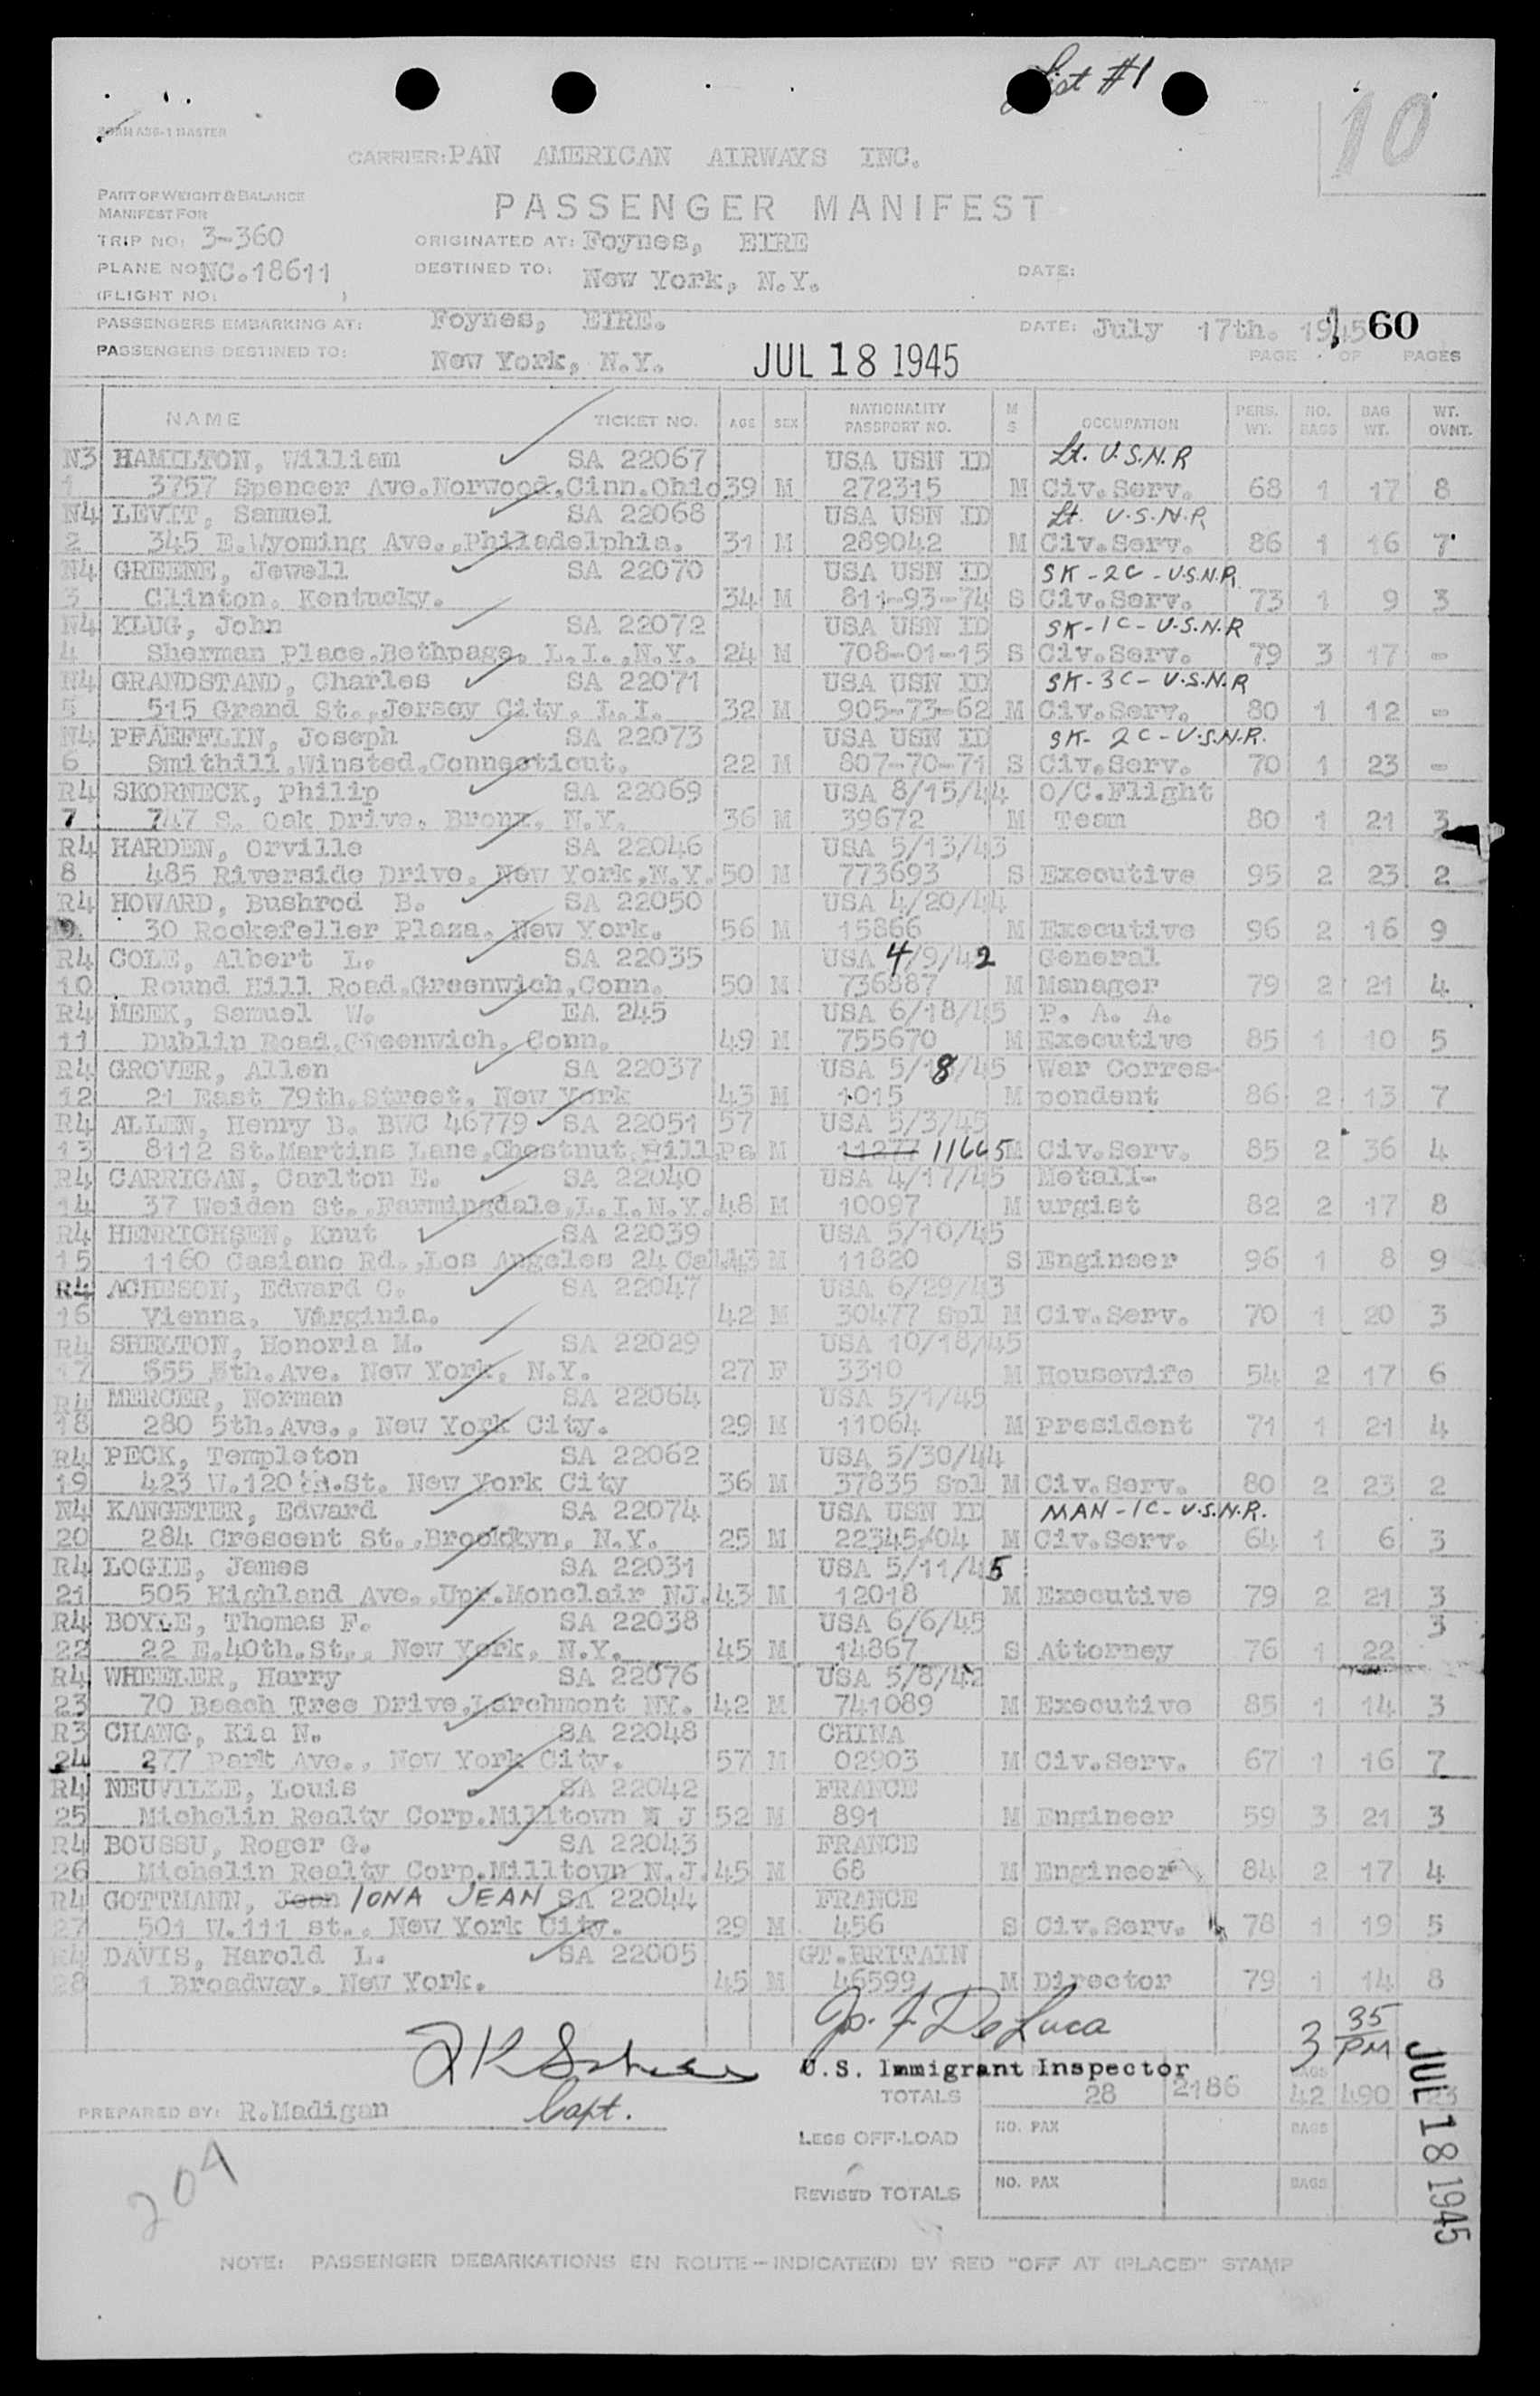 List #1
10
FORM ASG-1 MASTER
CARRIER: PAN AMERICAN AIRWAYS INC.
PART OF WEIGHT & BALANCE
MANIFEST FOR
PASSENGER MANIFEST
TRIP NO: 3-360 ORIGINATED AT: Foynes, EIRE
PLANE NO: NC.18611 DESTINED TO: New York, N.Y. DATE:
(FLIGHT NO: )
PASSENGERS EMBARKING AT: Foynes, EIRE. DATE: July 17th. 1945 60
PASSENGERS DESTINED TO: New York, N.Y. JUL 18 1945 PAGE OF PAGES
NAME TICKET NO. AGE SEX NATIONALITY PASSPORT NO. M S OCCUPATION PERS. WT. NO. BAGS BAG WT. WT. OVNT.
N3 HAMILTON, William SA 22067 USA USN ID Lt. U.S.N.R
1 3757 Spencer Ave.Norwood,Cinn.Ohio 39 M 272315 M Civ.Serv. 68 1 17 8
N4 LEVIT, Samuel SA 22068 USA USN ID Lt. U.S.N.R
2 345 E.Wyoming Ave.,Philadelphia. 31 M 289042 M Civ.Serv. 86 1 16 7
N4 GREENE, Jewell SA 22070 USA USN ID SK-2C-U.S.N.R.
3 Clinton, Kentucky. 34 M 811-93-74 S Civ.Serv. 73 1 9 3
N4 KLUG, John SA 22072 USA USN ID SK-1C-U.S.N.R
4 Sherman Place,Bethpage, L.I.,N.Y. 24 M 708-01-15 S Civ.Serv. 79 3 17 -
N4 GRANDSTAND, Charles SA 22071 USA USN ID SK-3C-U.S.N.R
5 515 Grand St.,Jersey City, L.I. 32 M 905-73-62 M Civ.Serv. 80 1 12 -
N4 PFAEFFLIN, Joseph SA 22073 USA USN ID SK-2C-U.S.N.R.
6 Smithill,Winsted,Connecticut. 22 M 807-70-71 S Civ.Serv. 70 1 23 -
R4 SKORNECK, Philip SA 22069 USA 8/15/44 O/C.Flight
7 747 S. Oak Drive, Bronx, N.Y. 36 M 39672 M Team 80 1 21 3
R4 HARDEN, Orville SA 22046 USA 5/13/43
8 485 Riverside Drive, New York,N.Y. 50 M 773693 S Executive 95 2 23 2
R4 HOWARD, Bushrod B. SA 22050 USA 4/20/44
9 30 Rockefeller Plaza, New York. 56 M 15866 M Executive 96 2 16 9
R4 COLE, Albert L. SA 22035 USA 4/9/42 General
10 Round Hill Road,Greenwich,Conn. 50 M 736887 M Manager 79 2 21 4
R4 MEEK, Samuel W. EA 245 USA 6/18/45 P. A. A.
11 Dublin Road,Greenwich, Conn. 49 M 755670 M Executive 85 1 10 5
R4 GROVER, Allen SA 22037 USA 5/18/45 War Corres-
12 21 East 79th.Street, New York 43 M 1015 M pondent 86 2 13 7
R4 ALLEN, Henry B. BWC 46779 SA 22051 57 USA 5/3/45
13 8112 St.Martins Lane,Chestnut Hill,Pa M 11277 11665 M Civ.Serv. 85 2 36 4
R4 CARRIGAN, Carlton E. SA 22040 USA 4/17/45 Metall-
14 37 Weiden St.,Farmingdale,L.I.N.Y. 48 M 10097 M urgist 82 2 17 8
R4 HENRICHSEN, Knut SA 22039 USA 5/10/45
15 1160 Casiano Rd.,Los Angeles 24 Cal. 43 M 11820 S Engineer 96 1 8 9
R4 ACHESON, Edward C. SA 22047 USA 6/29/43
16 Vienna, Virginia. 42 M 30477 Spl M Civ.Serv. 70 1 20 3
R4 SHELTON, Honoria M. SA 22029 USA 10/18/45
17 555 5th.Ave. New York, N.Y. 27 F 3310 M Housewife 54 2 17 6
R4 MERCER, Norman SA 22064 USA 5/1/45
18 280 5th.Ave., New York City. 29 M 11064 M President 71 1 21 4
R4 PECK, Templeton SA 22062 USA 5/30/44
19 423 W.120th.St. New York City 36 M 37835 Spl M Civ.Serv. 80 2 23 2
N4 KANGETER, Edward SA 22074 USA USN ID MAN-1C-U.S.N.R.
20 284 Crescent St.,Brooklyn, N.Y. 25 M 22345-04 M Civ.Serv. 64 1 6 3
R4 LOGIE, James SA 22031 USA 5/11/45
21 505 Highland Ave.,Upr.Monclair NJ. 43 M 12018 M Executive 79 2 21 3
R4 BOYLE, Thomas F. SA 22038 USA 6/6/45 3
22 22 E.40th.St., New York, N.Y. 45 M 14867 S Attorney 76 1 22
R4 WHEELER, Harry SA 22076 USA 5/8/42
23 70 Beach Tree Drive,Larchmont NY. 42 M 741089 M Executive 85 1 14 3
R3 CHANG, Kia N. SA 22048 CHINA
24 277 Park Ave., New York City. 57 M 02903 M Civ.Serv. 67 1 16 7
R4 NEUVILLE, Louis SA 22042 FRANCE
25 Michelin Realty Corp.Milltown N J 52 M 891 M Engineer 59 3 21 3
R4 BOUSSU, Roger G. SA 22043 FRANCE
26 Michelin Realty Corp.Milltown N.J. 45 M 68 M Engineer 84 2 17 4
R4 GOTTMANN, Jean IONA JEAN SA 22044 FRANCE
27 501 W.111 st., New York City. 29 M 456 S Civ.Serv. 78 1 19 5
R4 DAVIS, Harold L. SA 22005 GT.BRITAIN
28 1 Broadway, New York. 45 M 46599 M Director 79 1 14 8
Jos. F De Luca
3 35 PM
U.S. Immigrant Inspector
TOTALS 28 2186 BAGS 42 490 23
PREPARED BY: R.Madigan Capt.
LESS OFF-LOAD NO. PAX BAGS
REVISED TOTALS NO. PAX BAGS
JUL 18 1945
204
NOTE: PASSENGER DEBARKATIONS EN ROUTE - INDICATE(D) BY RED "OFF AT (PLACE)" STAMP